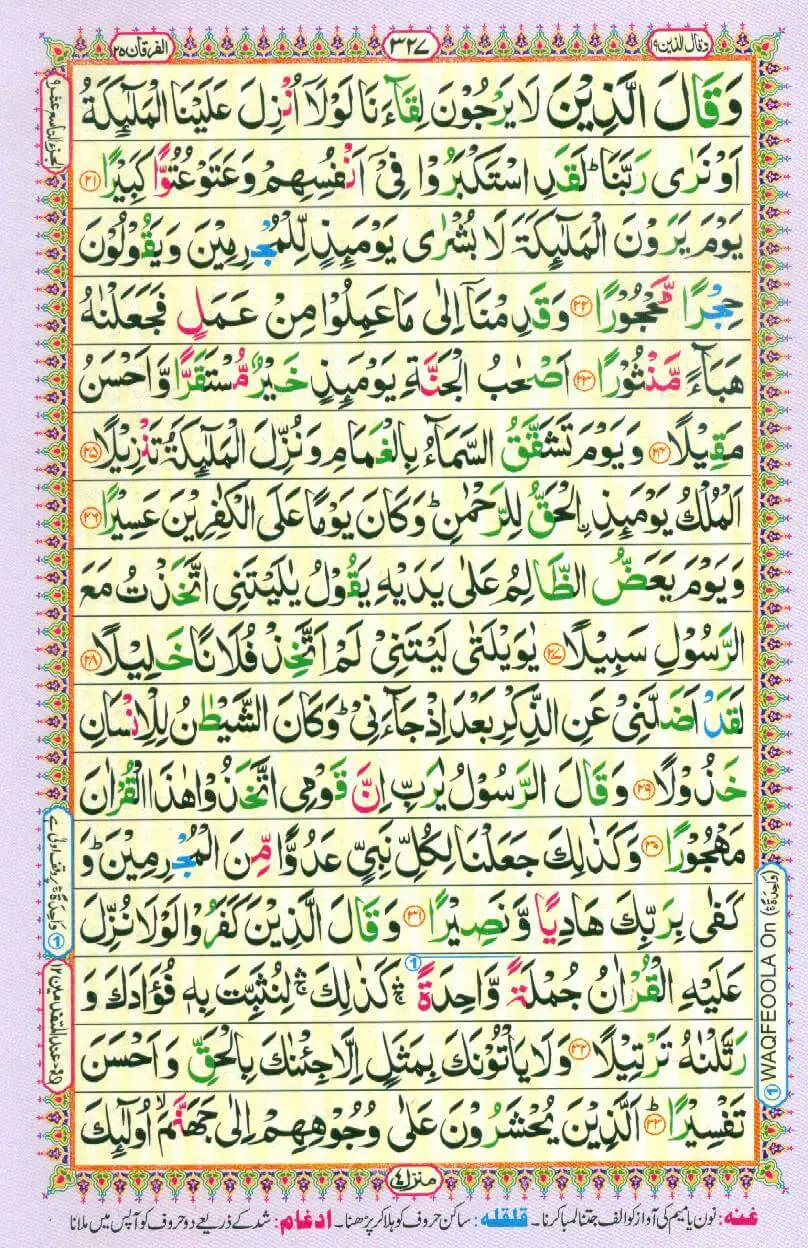 وقال الذین ۱۹
۳۲۷
الفرقان ۲۵
وَقَالَ الَّذِيْنَ لَا يَرْجُوْنَ لِقَآءَنَا لَوْلَاۤ اُنْزِلَ عَلَيْنَا الْمَلٰٓئِكَةُ
اَوْ نَرٰى رَبَّنَا ؕ لَقَدِ اسْتَكْبَرُوْا فِىْۤ اَنْفُسِهِمْ وَعَتَوْ عُتُوًّا كَبِيْرًا ۲۱
يَوْمَ يَرَوْنَ الْمَلٰٓئِكَةَ لَا بُشْرٰى يَوْمَئِذٍ لِّلْمُجْرِمِيْنَ وَيَقُوْلُوْنَ
حِجْرًا مَّحْجُوْرًا ۲۲ وَقَدِمْنَاۤ اِلٰى مَا عَمِلُوْا مِنْ عَمَلٍ فَجَعَلْنٰهُ
هَبَآءً مَّنْثُوْرًا ۲۳ اَصْحٰبُ الْجَنَّةِ يَوْمَئِذٍ خَيْرٌ مُّسْتَقَرًّا وَّاَحْسَنُ
مَقِيْلًا ۲۴ وَيَوْمَ تَشَقَّقُ السَّمَآءُ بِالْغَمَامِ وَنُزِّلَ الْمَلٰٓئِكَةُ تَنْزِيْلًا ۲۵
اَلْمُلْكُ يَوْمَئِذِ ِۨالْحَقُّ لِلرَّحْمٰنِ ؕ وَكَانَ يَوْمًا عَلَى الْكٰفِرِيْنَ عَسِيْرًا ۲۶
وَيَوْمَ يَعَضُّ الظَّالِمُ عَلٰى يَدَيْهِ يَقُوْلُ يٰلَيْتَنِى اتَّخَذْتُ مَعَ
الرَّسُوْلِ سَبِيْلًا ۲۷ يٰوَيْلَتٰى لَيْتَنِىْ لَمْ اَتَّخِذْ فُلَانًا خَلِيْلًا ۲۸
لَقَدْ اَضَلَّنِىْ عَنِ الذِّكْرِ بَعْدَ اِذْ جَآءَنِىْ ؕ وَكَانَ الشَّيْطٰنُ لِلْاِنْسَانِ
خَذُوْلًا ۲۹ وَقَالَ الرَّسُوْلُ يٰرَبِّ اِنَّ قَوْمِى اتَّخَذُوْا هٰذَا الْقُرْاٰنَ
مَهْجُوْرًا ۳۰ وَكَذٰلِكَ جَعَلْنَا لِكُلِّ نَبِىٍّ عَدُوًّا مِّنَ الْمُجْرِمِيْنَ ؕ وَ
كَفٰى بِرَبِّكَ هَادِيًا وَّنَصِيْرًا ۳۱ وَقَالَ الَّذِيْنَ كَفَرُوْا لَوْلَا نُزِّلَ
عَلَيْهِ الْقُرْاٰنُ جُمْلَةً وَّاحِدَةً ۛۚ كَذٰلِكَ ۛۚ لِنُثَبِّتَ بِهٖ فُؤَادَكَ وَ
رَتَّلْنٰهُ تَرْتِيْلًا ۳۲ وَلَا يَاْتُوْنَكَ بِمَثَلٍ اِلَّا جِئْنٰكَ بِالْحَقِّ وَاَحْسَنَ
تَفْسِيْرًا ؕ ۳۳ اَلَّذِيْنَ يُحْشَرُوْنَ عَلٰى وُجُوْهِهِمْ اِلٰى جَهَنَّمَ ۙ اُولٰٓئِكَ
WAQFEOOLA On (وَاحِدَةً)
منزل ۴
غنه: نون یا میم کی آواز کو الف جتنا لمبا کرنا۔ قلقله: ساکن حروف کو ہلا کر پڑھنا۔ ادغام: شد کے ذریعے دو حروف کو آپس میں ملانا